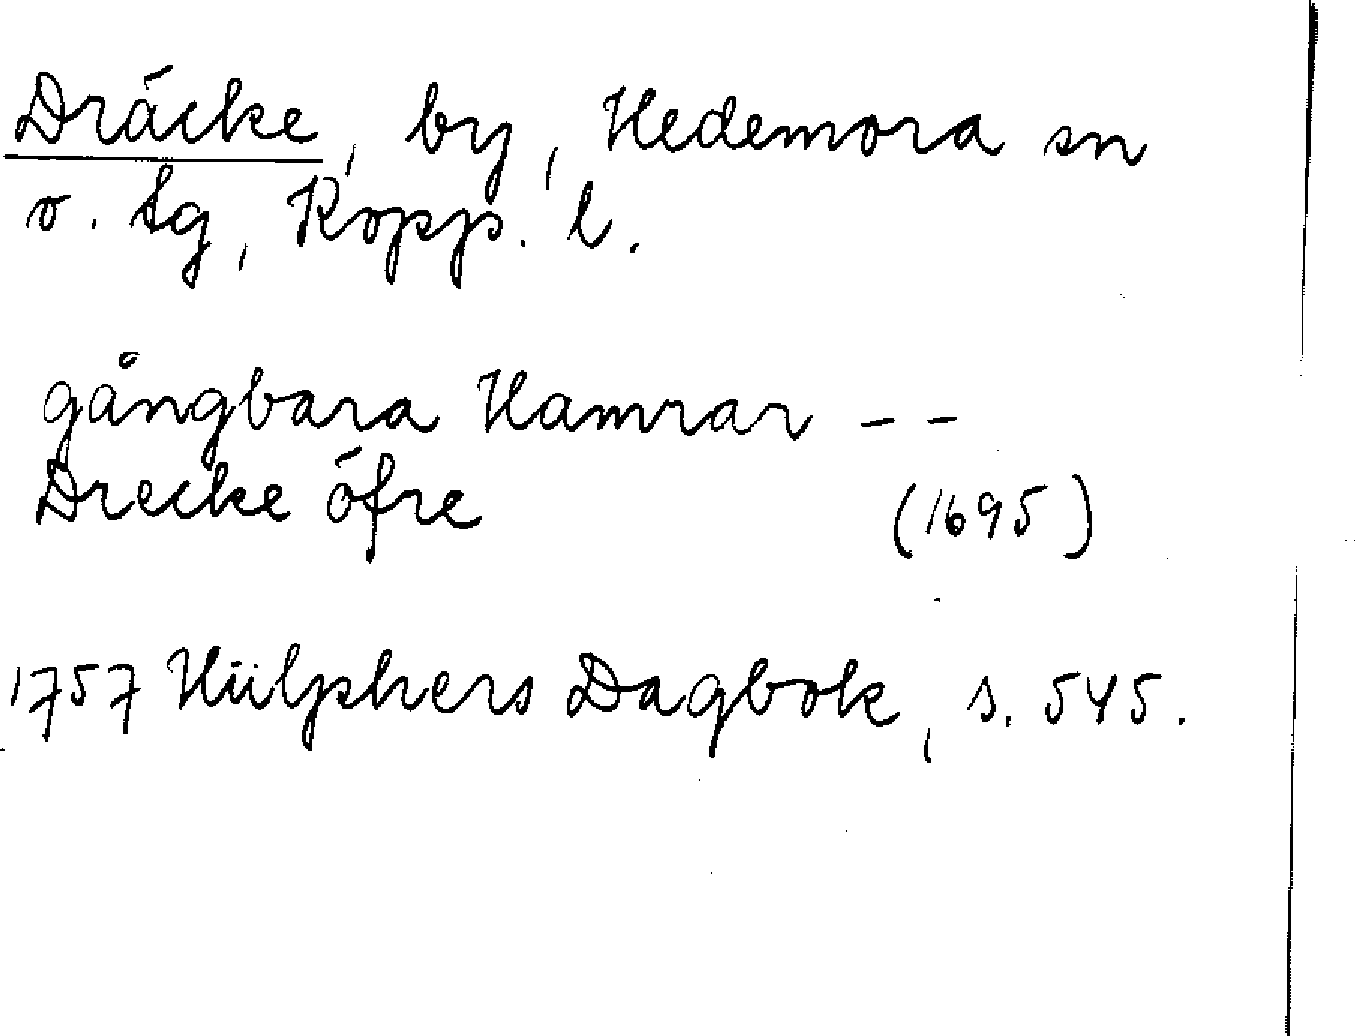 Dräcke, by, Hedemora sn
o. tg, Kopp. l.
gångbara Hamrar - -
Drecke öfre (1695)
1757 Hülphers Dagbok, s. 545.